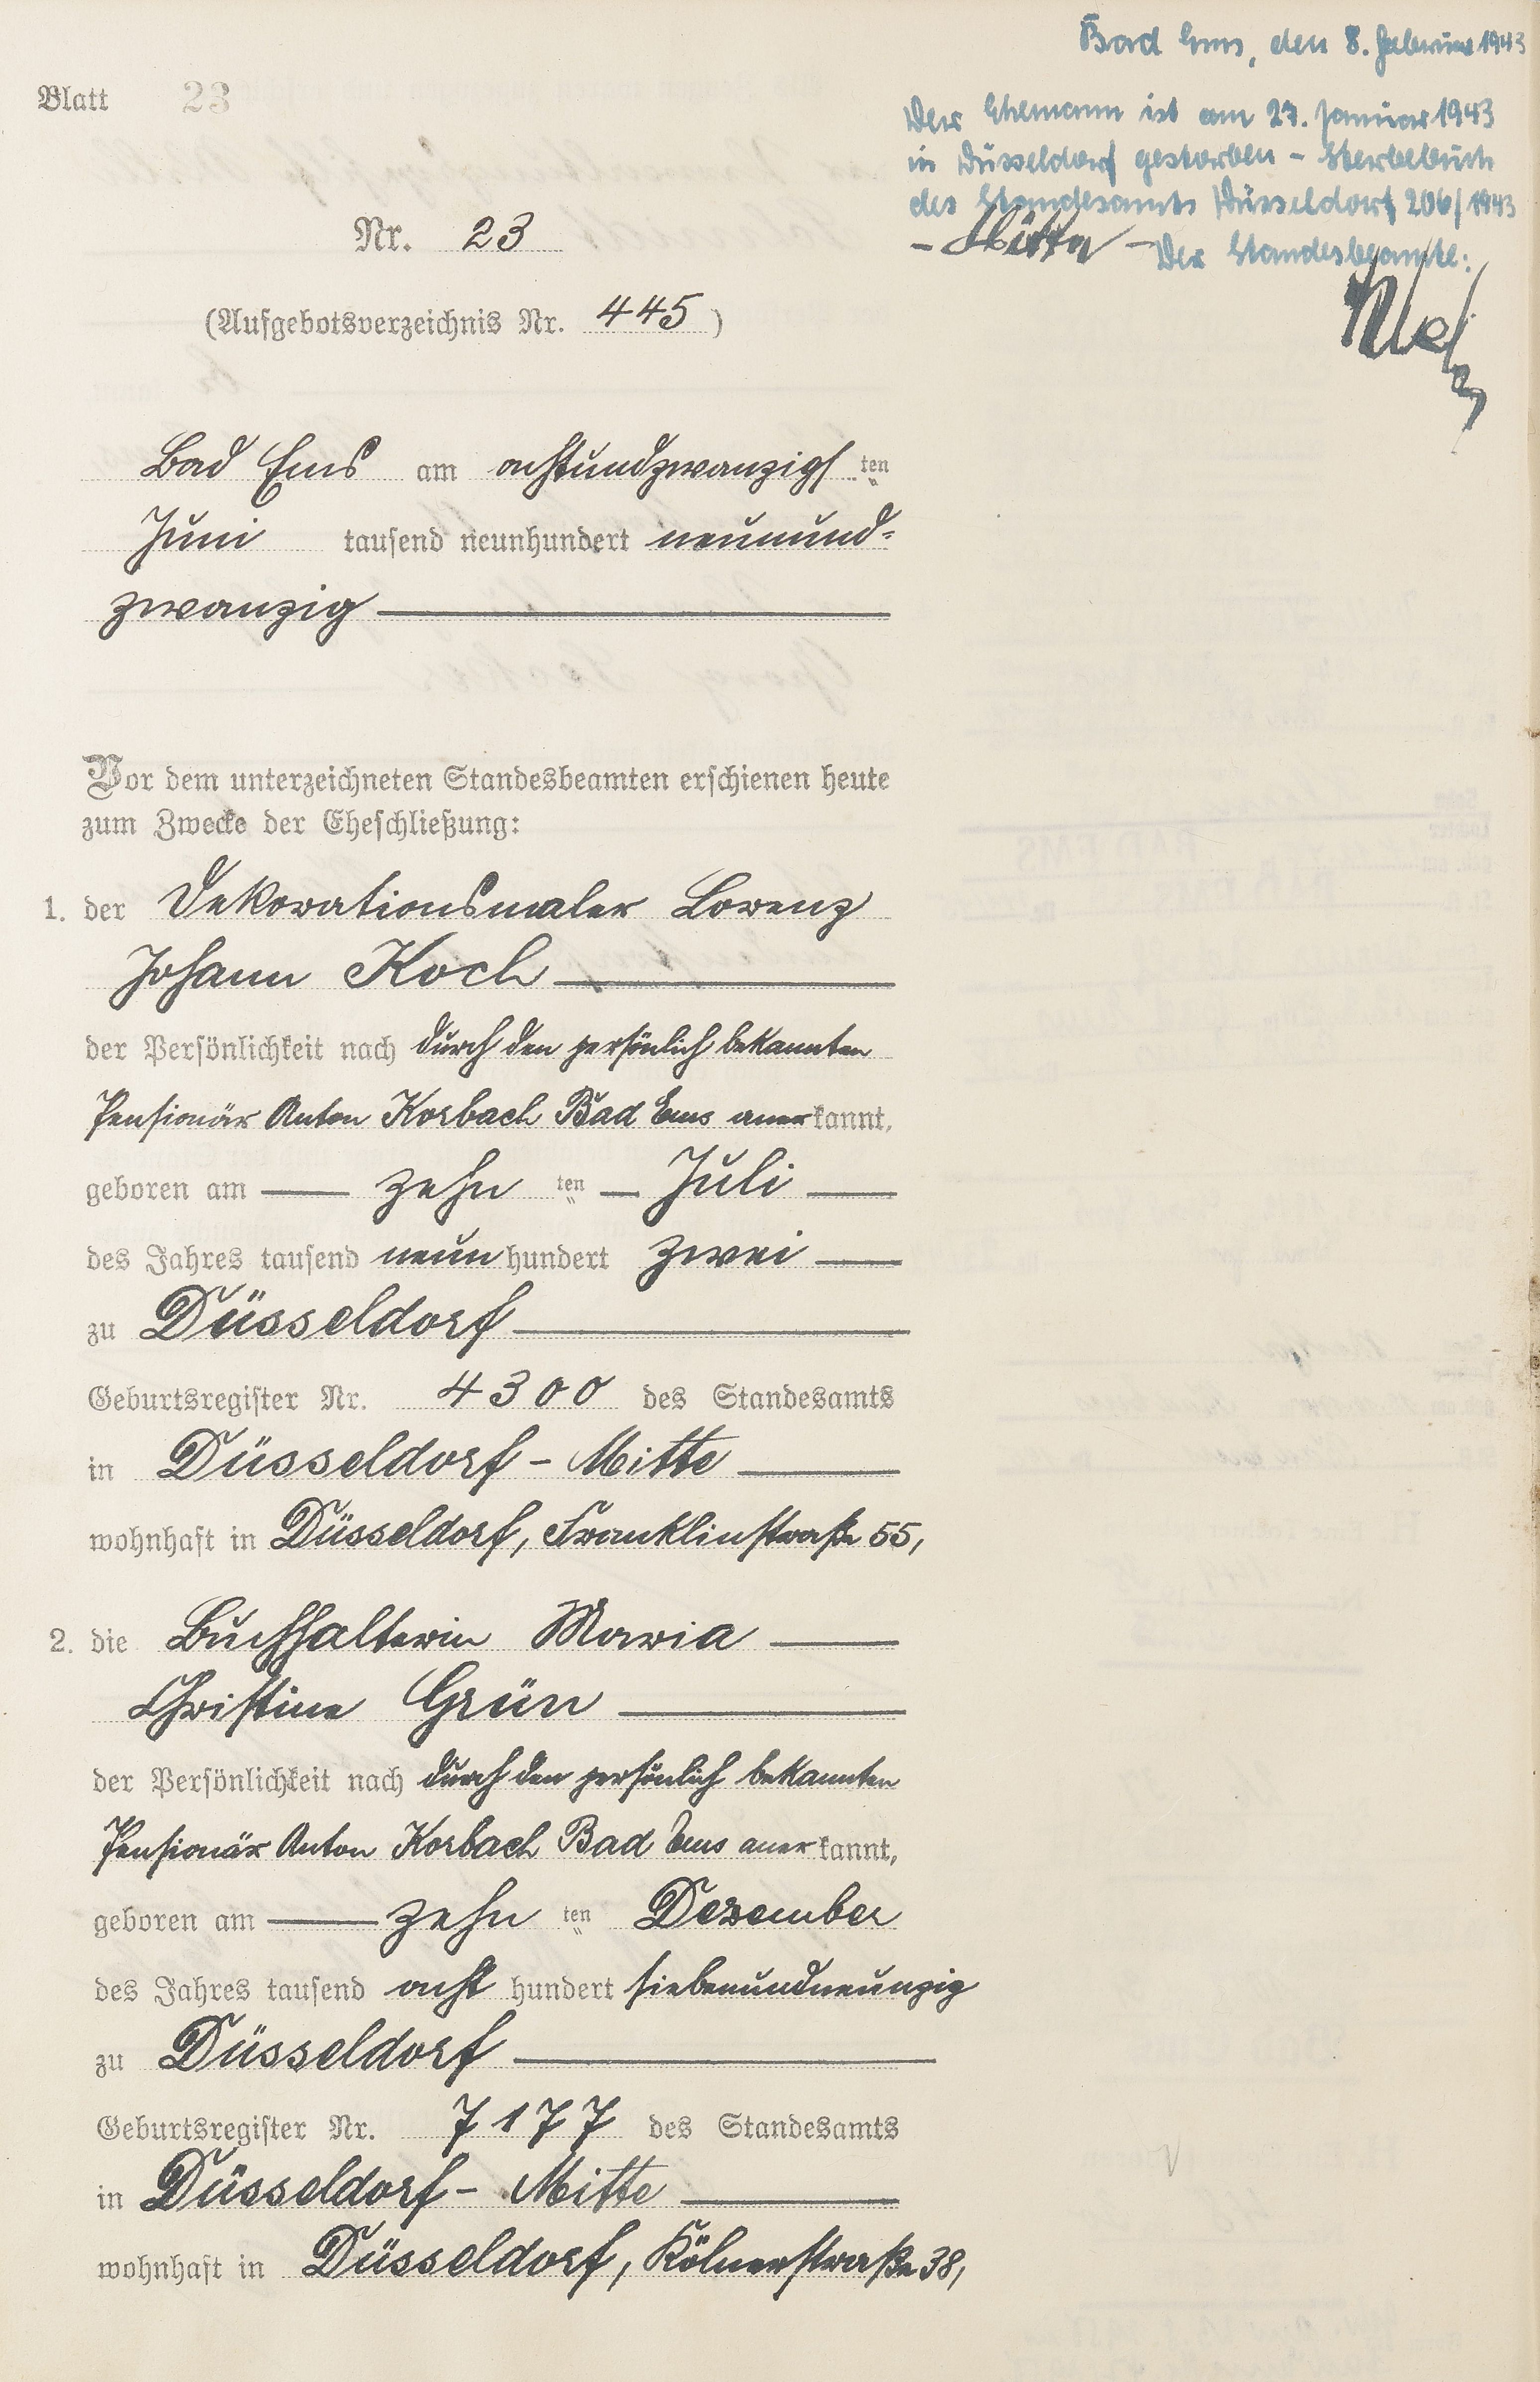 Blatt 23
Bad Ems, den 8. Februar 1943
Der Ehemann ist am 27. Januar 1943
in Düsseldorf gestorben – Sterbebuch
des Standesamts Düsseldorf 206/1943
– Mitte – Der Standesbeamte:
Nr. 23
(Aufgebotsverzeichnis Nr. 445)
Bad Ems am achtundzwanzigsten
Juni tausend neunhundert neunund-
zwanzig
Vor dem unterzeichneten Standesbeamten erschienen heute
zum Zwecke der Eheschließung:
1. der Dekorationsmaler Lorenz
Johann Koch
der Persönlichkeit nach durch den persönlich bekannten
Pensionär Anton Korbach Bad Ems anerkannt,
geboren am zehnten Juli
des Jahres tausend neunhundert zwei
zu Düsseldorf
Geburtsregister Nr. 4300 des Standesamts
in Düsseldorf - Mitte
wohnhaft in Düsseldorf, Franklinstraße 55,
2. die Buchhalterin Maria
Christine Grün
der Persönlichkeit nach durch den persönlich bekannten
Pensionär Anton Korbach Bad Ems anerkannt,
geboren am zehnten Dezember
des Jahres tausend acht hundert siebenundneunzig
zu Düsseldorf
Geburtsregister Nr. 7177 des Standesamts
in Düsseldorf - Mitte
wohnhaft in Düsseldorf, Kölnerstraße 38,